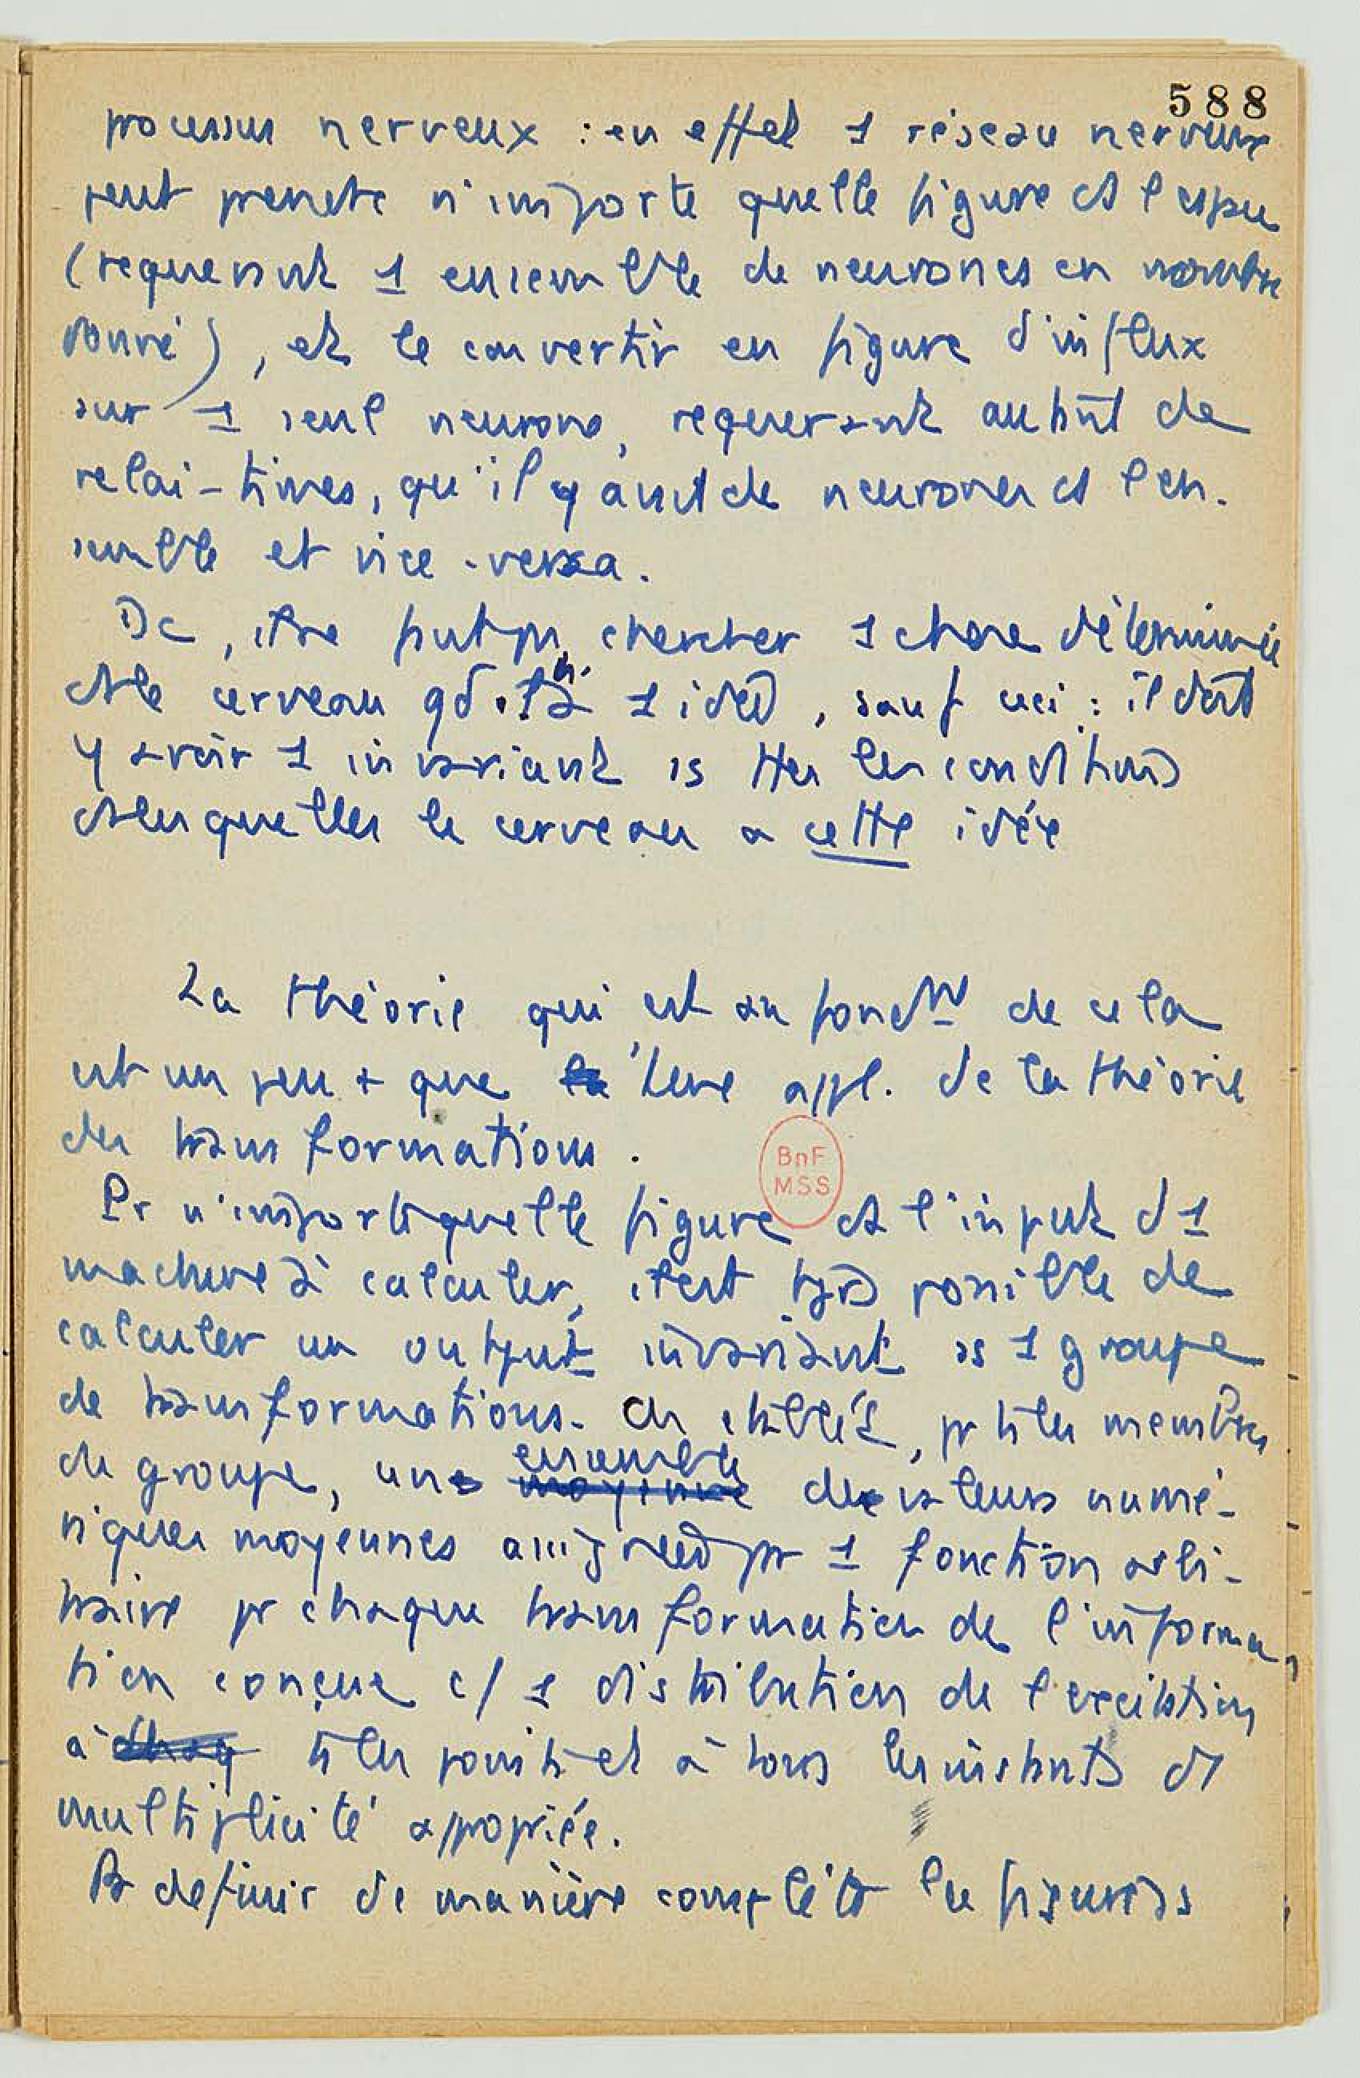 588
processus nerveux : en effet 1 réseau nerveux
peut prendre n'importe quelle figure ds l'espace
(requerant 1 ensemble de neurones en nombre
donné), et le convertir en figure d'influx
sur 1 seul neurone, requerant autant de
relai-times, qu'il y avait de neurones ds l'en-
semble et vice-versa.
Dc, il ne faut pas chercher 1 chose déterminée
ds le cerveau qd il a 1 idée, sauf ceci : il doit
y avoir 1 invariant ss ttes les conditions
ds lesquelles le cerveau a cette idée
La théorie qui est au fondt de cela
est un peu + que l'bere appl. de la théorie
des transformations.
Pr n'importe quelle figure ds l'input d'1
machine à calculer, il est tjrs possible de
calculer un output invariant ss 1 groupe
de transformations. On établit, pr ts les membres
du groupe, un ensemble de valeurs numé-
riques moyennes assignées pr 1 fonction arbi-
traire pr chaque transformation de l'informa
tion conçue c/ 1 distribution de l'excitation
à ts les points et à tous les instants ds
multiplicité appropriée.
Pr definir de manière complète les figures ss
BnF
MSS